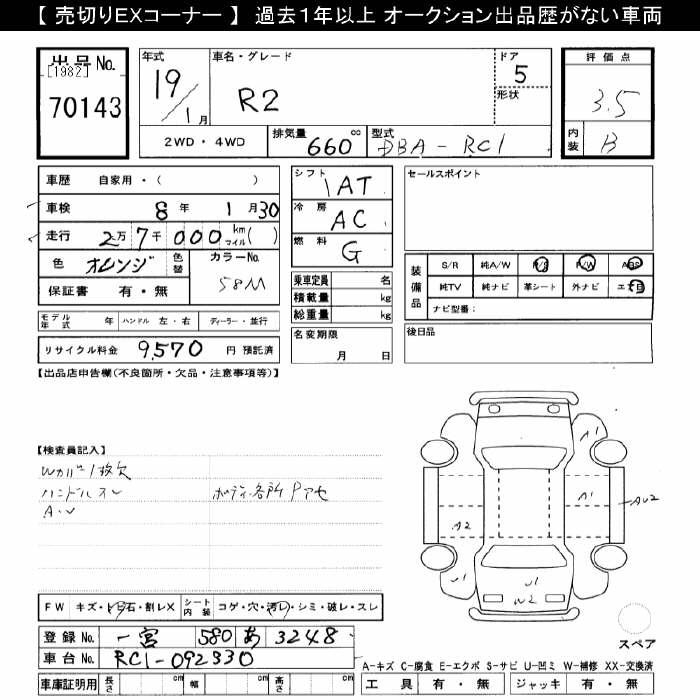 【 売切りEXコーナー 】 過去1年以上 オークション出品歴がない車両
出品 No.
[1982]
70143
年式
19/1月
車名・グレード
R2
ドア
5
形状
評価点
3.5
内装
B
2WD・4WD
排気量 660 cc
型式 DBA-RC1
車歴 自家用・( )
車検 8年 1月30
走行 2万7千000 km マイル( )
色 オレンジ
色替
カラーNo.
58M
保証書 有・無
シフト
IAT
冷房
AC
燃料
G
セールスポイント
装備品
S/R 純A/W P/S P/W ABS
純TV 純ナビ 革シート 外ナビ
ナビ型番:
乗車定員 名
積載量 kg
総重量 kg
モデル年式 年 ハンドル 左・右 ディーラー・並行
名変期限
月 日
後日品
リサイクル料金 9,570 円 預託済
【出品店申告欄(不良箇所・欠品・注意事項等)】
【検査員記入】
Wカバー1枚欠
ハンドルスレ
ボディ各所
A1
A1
AU2
A2
U1
U1
U1
W2
FW キズ・トビ石・割レX
シート内装 コゲ・穴・汚レ・シミ・破レ・スレ
登録No. 一宮 580 あ 3248
車台No. RC1-092330
スペア
A-キズ C-腐食 E-エクボ S-サビ U-凹ミ W-補修 XX-交換済
車庫証明用 長さ cm 幅 cm 高さ cm
工具 有・無 ジャッキ 有・無